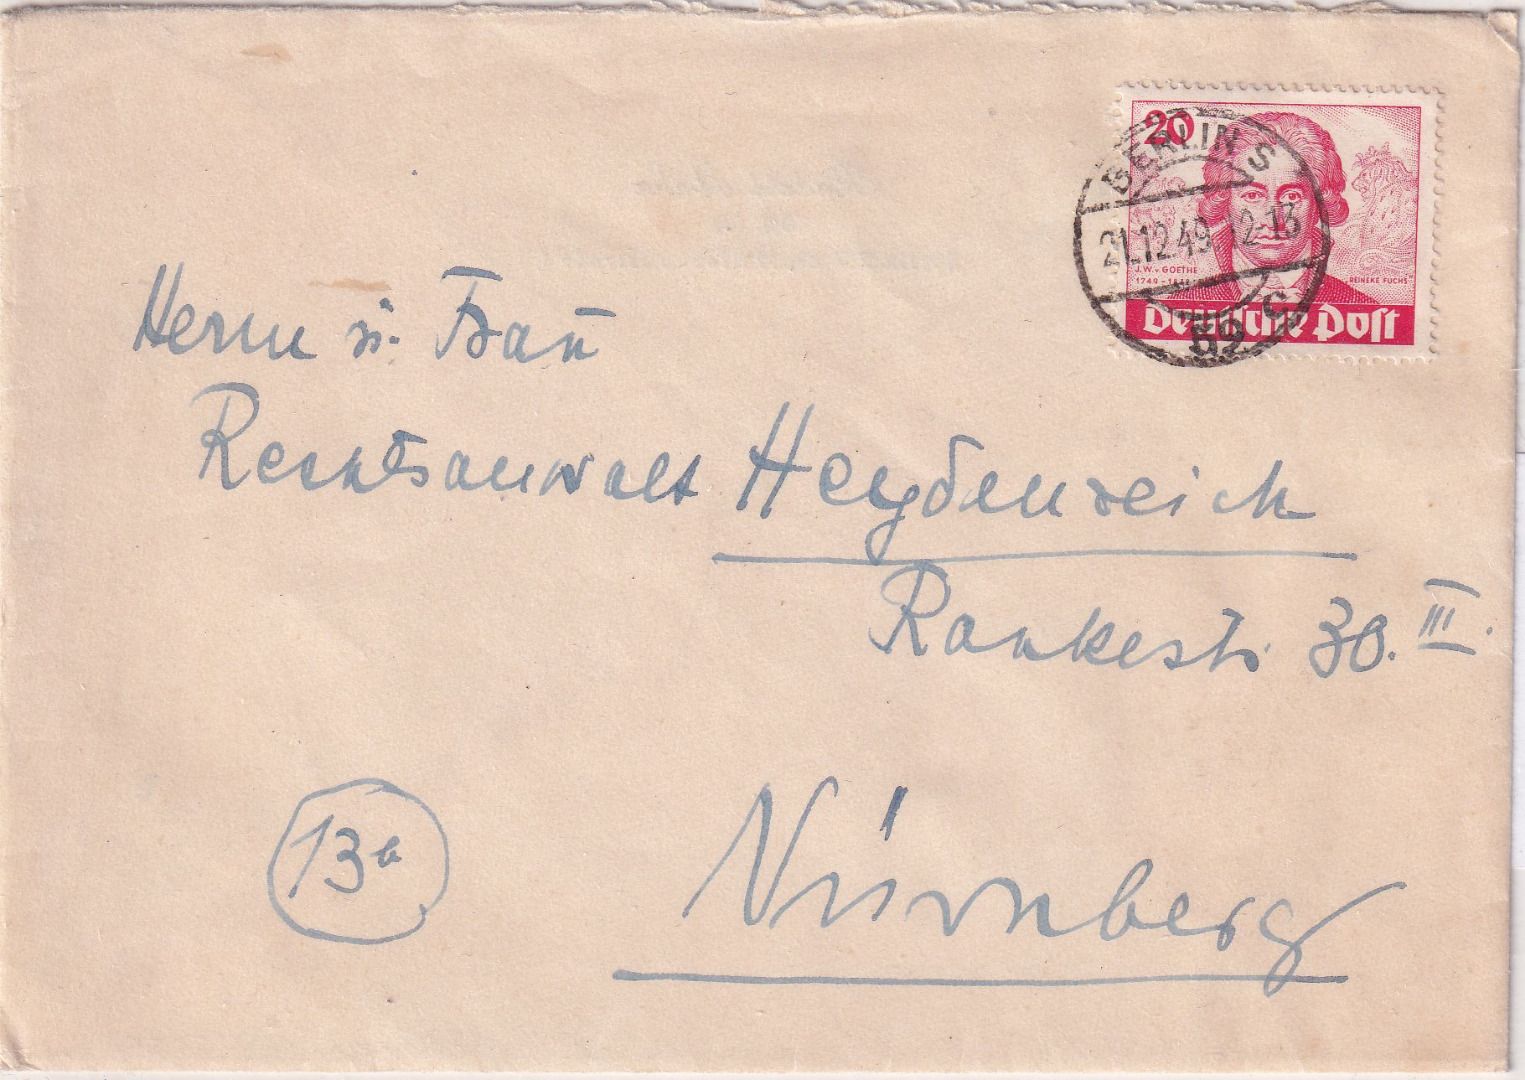 20
J.W.v. GOETHE
1749-
REINEKE FUCHS"
Deutsche Post
BERLIN S
21.12.49 12-13
59
Herrn u. Frau
Rechtsanwalt Heydenreich
Rankestr. 30. III.
13a
Nürnberg